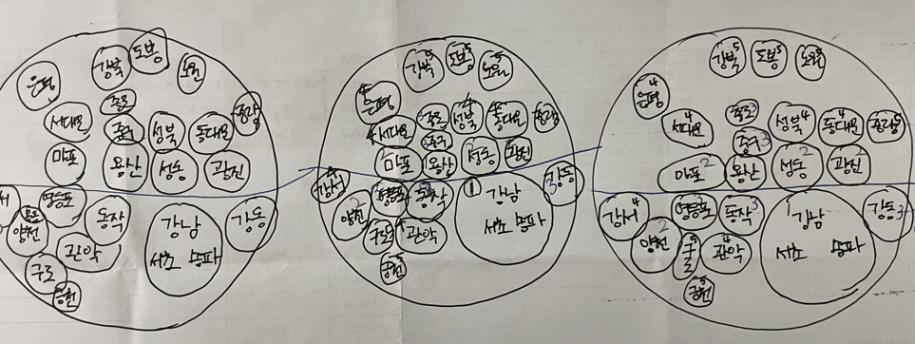 은평
강북
도봉
노원
서대문
종로
중구
성북
동대문
중랑
마포
용산
성동
광진
서
영등포
동작
강남
서초 송파
강동
양천
구로
관악
금천
은평 4
강북 5
도봉 5
노원 5
서대문 4
종로 3
중구 3
성북 4
동대문 4
중랑 5
마포 2
용산
성동 2
광진 2
강서 4
양천 2
영등포
동작
① 강남
서초 송파
강동 3
구로
관악
금천 5
은평 4
강북 5
도봉 5
노원 5
서대문 4
종로 3
중구 3
성북 4
동대문 4
중랑 5
마포 2
용산
성동 2
광진 2
강서 4
양천 2
영등포
동작 3
1 강남
서초 송파
강동 3
구로 5
관악 4
금천 5